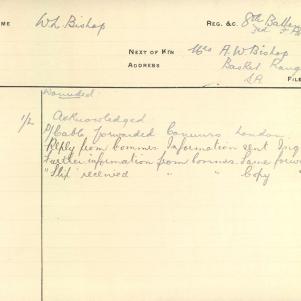 ME W L Bishop REG. &C. 8th Batter
3rd
NEXT OF KIN Mrs A. W Bishop
ADDRESS Basket Rang
SA FILE
Wounded.
1/2 Acknowledged
Cable forwarded London
Reply from Commrs. Information sent
Further information from Commrs. Same forw
"Slip" received " " Copy "